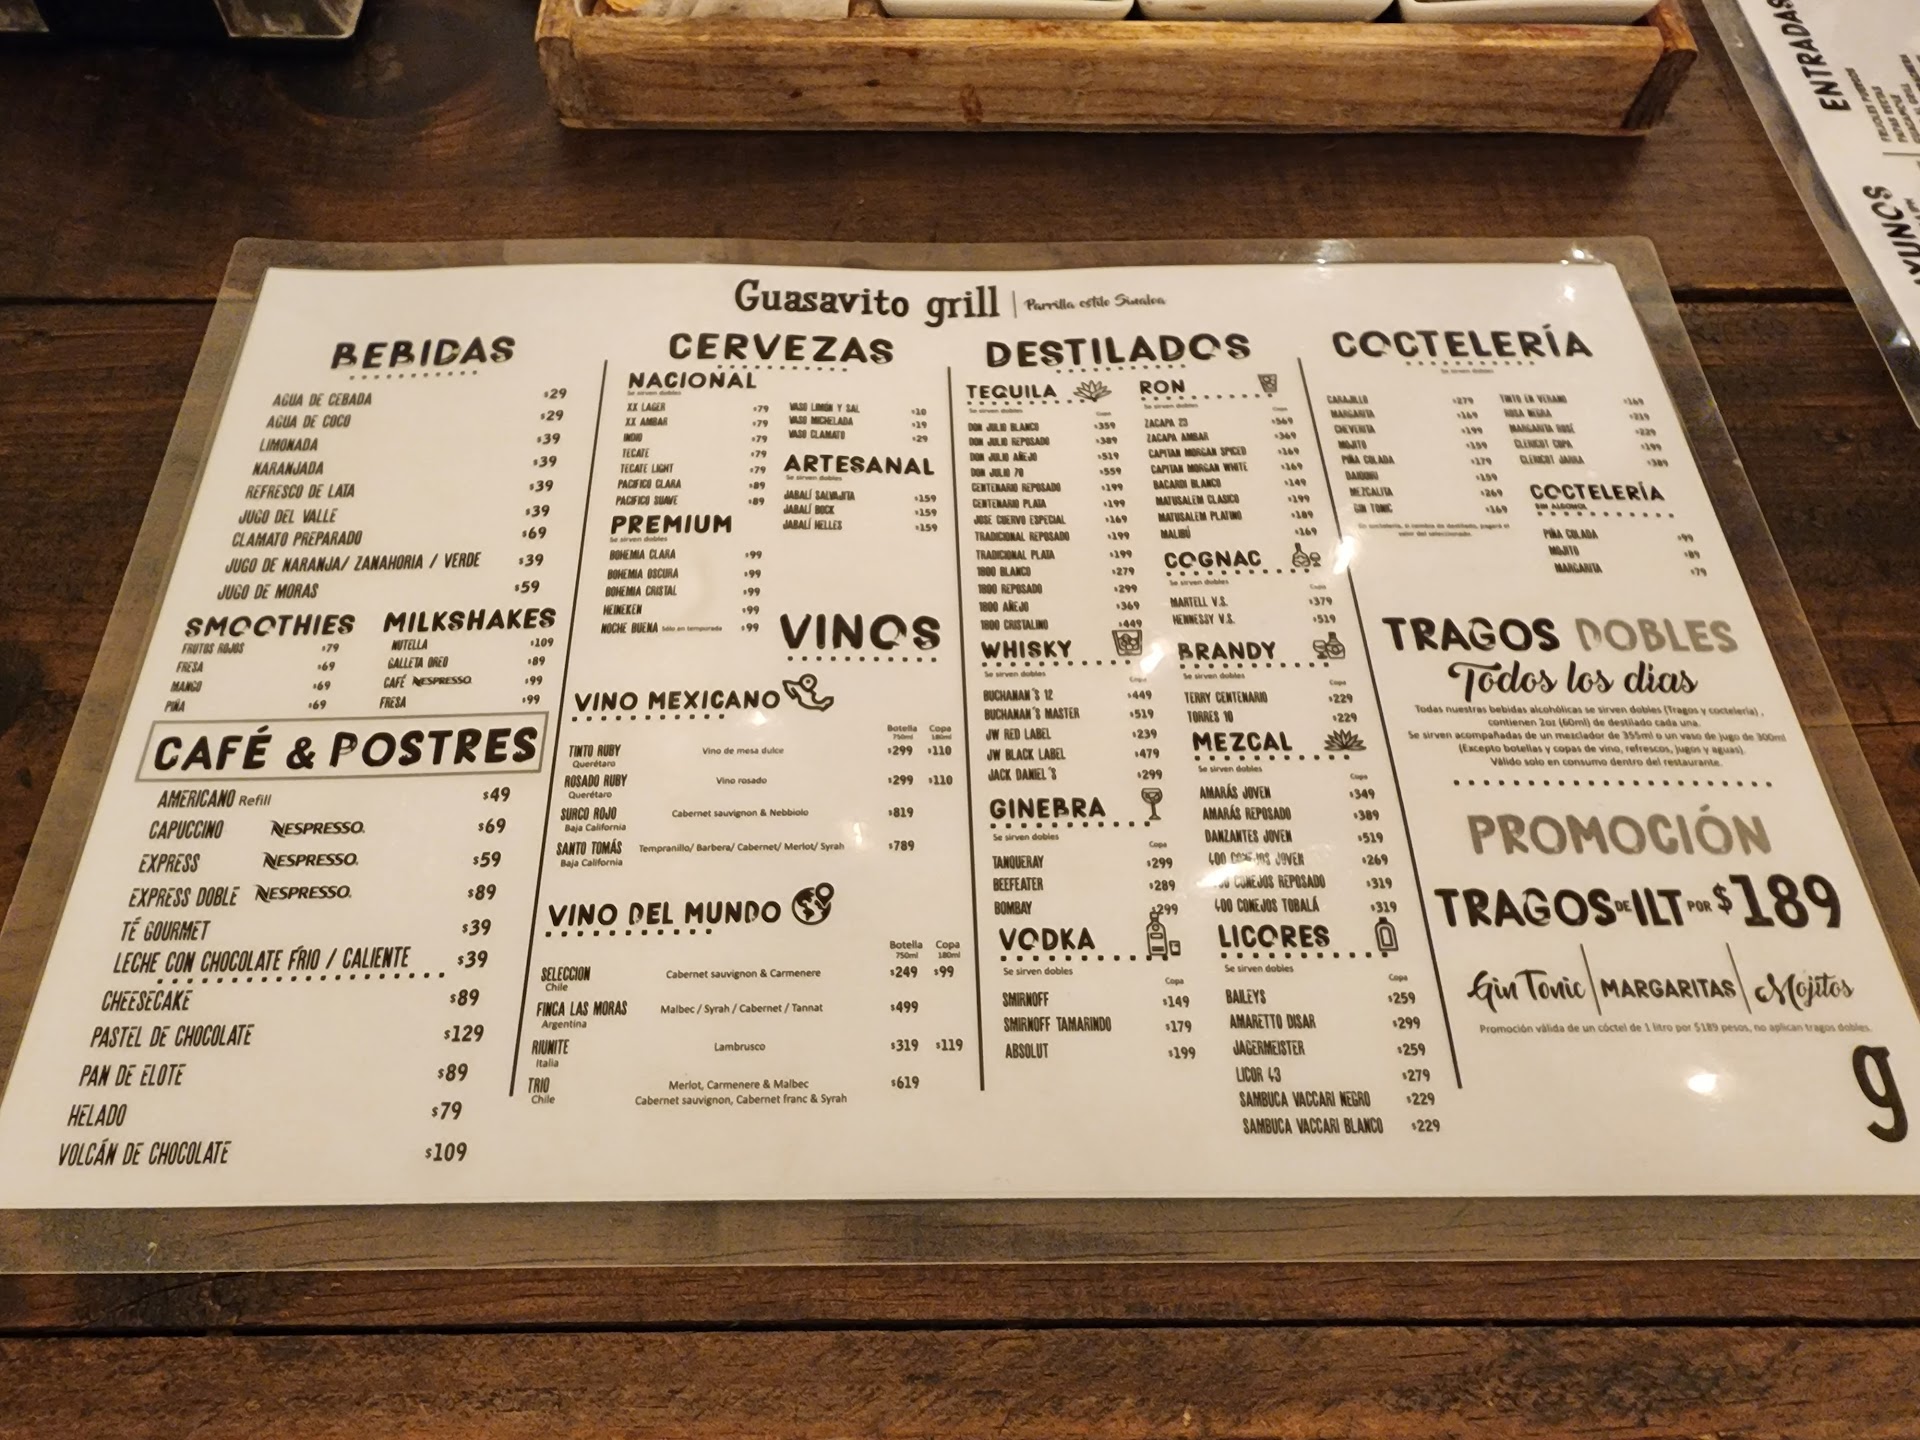 Guasavito grill | Parrilla estilo Sinaloa
BEBIDAS
AGUA DE CEBADA $29
AGUA DE COCO $29
LIMONADA $39
NARANJADA $39
REFRESCO DE LATA $39
JUGO DEL VALLE $39
CLAMATO PREPARADO $69
JUGO DE NARANJA/ ZANAHORIA / VERDE $39
JUGO DE MORAS $59
SMOOTHIES
FRUTOS ROJOS $79
FRESA $69
MANGO $69
PIÑA $69
MILKSHAKES
NUTELLA $109
GALLETA OREO $89
CAFÉ NESPRESSO $99
FRESA $99
CAFÉ & POSTRES
AMERICANO Refill $49
CAPUCCINO NESPRESSO. $69
EXPRESS NESPRESSO. $59
EXPRESS DOBLE NESPRESSO. $89
TÉ GOURMET $39
LECHE CON CHOCOLATE FRÍO / CALIENTE $39
CHEESECAKE $89
PASTEL DE CHOCOLATE $129
PAN DE ELOTE $89
HELADO $79
VOLCÁN DE CHOCOLATE $109
CERVEZAS
NACIONAL
Se sirven dobles
XX LAGER $79
XX AMBAR $79
INDIO $79
TECATE $79
TECATE LIGHT $79
PACIFICO CLARA $89
PACIFICO SUAVE $89
PREMIUM
Se sirven dobles
BOHEMIA CLARA $99
BOHEMIA OSCURA $99
BOHEMIA CRISTAL $99
HEINEKEN $99
NOCHE BUENA Sólo en temporada $99
VASO LIMÓN Y SAL $10
VASO MICHELADA $19
VASO CLAMATO $29
ARTESANAL
Se sirven dobles
JABALÍ SALVAJITA $159
JABALÍ BOCK $159
JABALÍ HELLES $159
VINOS
VINO MEXICANO
Botella 750ml Copa 180ml
TINTO RUBY Vino de mesa dulce $299 $110
Querétaro
ROSADO RUBY Vino rosado $299 $110
Querétaro
SURCO ROJO Cabernet sauvignon & Nebbiolo $819
Baja California
SANTO TOMÁS Tempranillo/ Barbera/ Cabernet/ Merlot/ Syrah $789
Baja California
VINO DEL MUNDO
Botella 750ml Copa 180ml
SELECCION Cabernet sauvignon & Carmenere $249 $99
Chile
FINCA LAS MORAS Malbec / Syrah / Cabernet / Tannat $499
Argentina
RIUNITE Lambrusco $319 $119
Italia
TRIO Merlot, Carmenere & Malbec $619
Chile Cabernet sauvignon, Cabernet franc & Syrah
DESTILADOS
TEQUILA
Se sirven dobles
Copa
DON JULIO BLANCO $359
DON JULIO REPOSADO $389
DON JULIO AÑEJO $519
DON JULIO 70 $559
CENTENARIO REPOSADO $199
CENTENARIO PLATA $199
JOSE CUERVO ESPECIAL $169
TRADICIONAL REPOSADO $199
TRADICIONAL PLATA $199
1800 BLANCO $279
1800 REPOSADO $299
1800 AÑEJO $369
1800 CRISTALINO $449
WHISKY
Se sirven dobles
Copa
BUCHANAN´S 12 $449
BUCHANAN´S MASTER $519
JW RED LABEL $239
JW BLACK LABEL $479
JACK DANIEL´S $299
GINEBRA
Se sirven dobles
Copa
TANQUERAY $299
BEEFEATER $289
BOMBAY $299
VODKA
Se sirven dobles
Copa
SMIRNOFF $149
SMIRNOFF TAMARINDO $179
ABSOLUT $199
RON
Se sirven dobles
Copa
ZACAPA 23 $569
ZACAPA AMBAR $369
CAPITAN MORGAN SPICED $169
CAPITAN MORGAN WHITE $169
BACARDI BLANCO $149
MATUSALEM CLASICO $199
MATUSALEM PLATINO $189
MALIBÚ $169
COGNAC
Se sirven dobles
Copa
MARTELL V.S. $379
HENNESSY V.S. $519
BRANDY
Se sirven dobles
Copa
TERRY CENTENARIO $229
TORRES 10 $229
MEZCAL
Se sirven dobles
Copa
AMARÁS JOVEN $349
AMARÁS REPOSADO $389
DANZANTES JOVEN $519
400 CONEJOS JOVEN $269
400 CONEJOS REPOSADO $319
400 CONEJOS TOBALÁ $319
LICORES
Se sirven dobles
Copa
BAILEYS $259
AMARETTO DISAR $299
JAGERMEISTER $259
LICOR 43 $279
SAMBUCA VACCARI NEGRO $229
SAMBUCA VACCARI BLANCO $229
COCTELERÍA
Se sirven dobles
CARAJILLO $279
MARGARITA $169
CHEVERITA $199
MOJITO $159
PIÑA COLADA $179
DAIQUIRI $159
MEZCALITA $269
GIN TONIC $169
TINTO EN VERANO $169
ROSA NEGRA $219
MARGARITA ROSÉ $229
CLERICOT COPA $199
CLERICOT JARRA $389
En coctelería, si cambia de destilado, pagará el
valor del seleccionado.
COCTELERÍA
SIN ALCOHOL
PIÑA COLADA $99
MOJITO $89
MARGARITA $79
TRAGOS DOBLES
Todos los dias
Todas nuestras bebidas alcohólicas se sirven dobles (Tragos y coctelería) ,
contienen 2oz (60ml) de destilado cada una.
Se sirven acompañadas de un mezclador de 355ml o un vaso de jugo de 300ml
(Excepto botellas y copas de vino, refrescos, jugos y aguas).
Válido solo en consumo dentro del restaurante.
PROMOCIÓN
TRAGOS DE 1LT POR $189
Gin Tonic | MARGARITAS | Mojitos
Promoción válida de un cóctel de 1 litro por $189 pesos, no aplican tragos dobles.
g
ENTRADAS